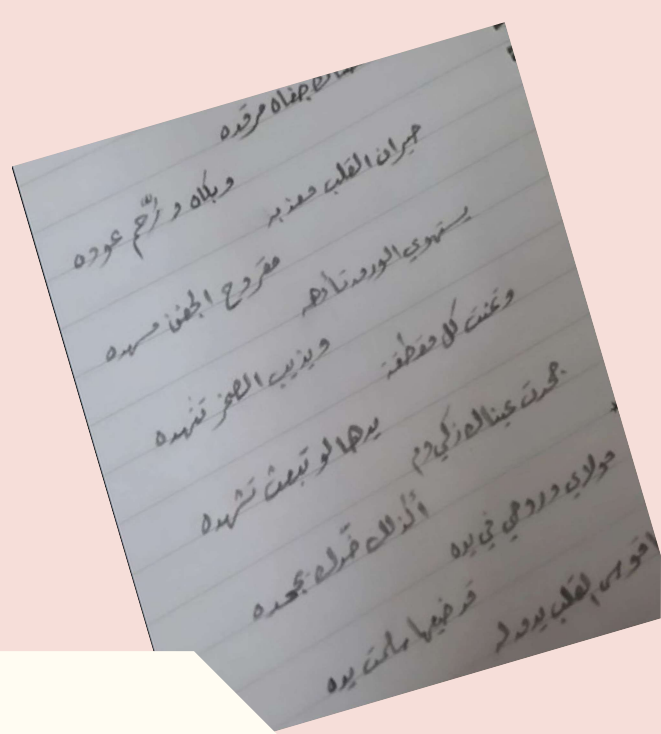 جفاه مرقده
وبكاه ورَحَّم عوده
حيران القلب معذبه
مقروح الجفن مسهده
يستهوي الورق تأوهه
ويذيب الصخر تنهده
وتمنت كل مقطعة
يدها لو تبعث تشهده
جحدت عيناك زكي دم
أكذلك خدّك يجحده
مولاي وروحي في يده
قد ضيعها سلمت يده
القلب يدق له